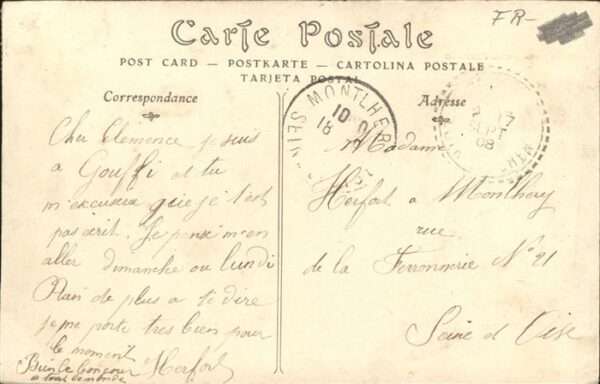 FR-
Carte Postale
POST CARD — POSTKARTE — CARTOLINA POSTALE
TARJETA POSTAL
Correspondance
Adresse
MONTLHERY
10
18
17
SEPT
08
Cher Clemence je suis
a Gouffi et tu
m'excusera que je t'est
pas écrit. Je pense m'en
aller dimanche ou lundi
Rien de plus a te dire
je me porte tres bien pour
le moment
Bien le bonjour
a tout le monde
Herfort
Madame
Herfort a Montlhery
rue
de la Ferronnerie No 21
Seine et Oise